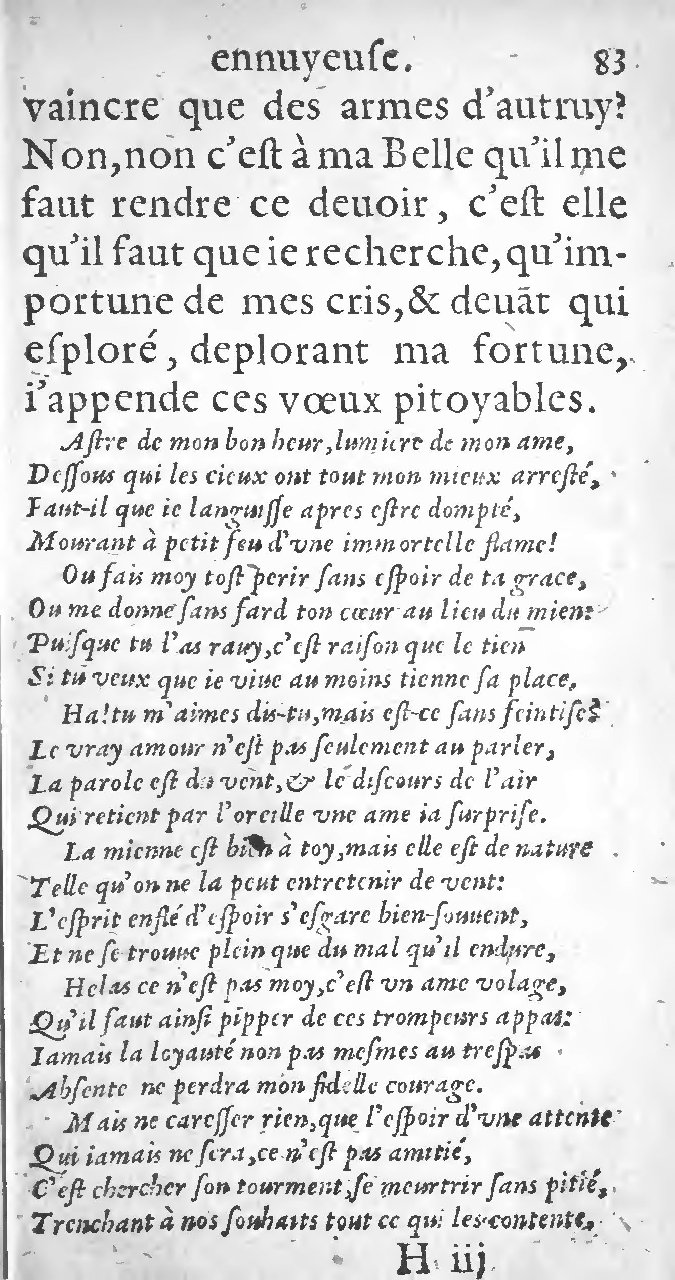 ennuyeuſe. 83
vaincre que des armes d'autruy?
Non,non c'eſt à ma Belle qu'il me
faut rendre ce deuoir, c'eſt elle
qu'il faut que ie recherche,qu'im-
portune de mes cris,& deuāt qui
eſploré, deplorant ma fortune,
i'appende ces vœux pitoyables.
Aſtre de mon bon heur,lumiere de mon ame,
Deſſous qui les cieux ont tout mon mieux arreſté,
Faut-il que ie languiſſe apres eſtre dompté,
Mourant à petit feu d'vne immortelle flame!
Ou fais moy toſt perir ſans eſpoir de ta grace,
Ou me donne ſans fard ton cœur au lieu du mien:
Puiſque tu l'as rauy,c'eſt raiſon que le tien
Si tu veux que ie viue au moins tienne ſa place,
Ha!tu m'aimes dis-tu,mais eſt-ce ſans feintiſe?
Le vray amour n'eſt pas ſeulement au parler,
La parole eſt du vent,& le diſcours de l'air
Qui retient par l'oreille vne ame ia ſurpriſe.
La mienne eſt bien à toy,mais elle eſt de nature
Telle qu'on ne la peut entretenir de vent:
L'eſprit enflé d'eſpoir s'eſgare bien-ſouuent,
Et ne ſe trouue plein que du mal qu'il endure,
Helas ce n'eſt pas moy,c'eſt vn ame volage,
Qu'il faut ainſi pipper de ces trompeurs appas:
Iamais la loyauté non pas meſmes au treſpas
Abſente ne perdra mon fidelle courage.
Mais ne careſſer rien,que l'eſpoir d'vne attente
Qui iamais ne ſera,ce n'eſt pas amitié,
C'eſt chercher ſon tourment,ſe meurtrir ſans pitié,
Trenchant à nos ſouhaits tout ce qui les contente,
H iij